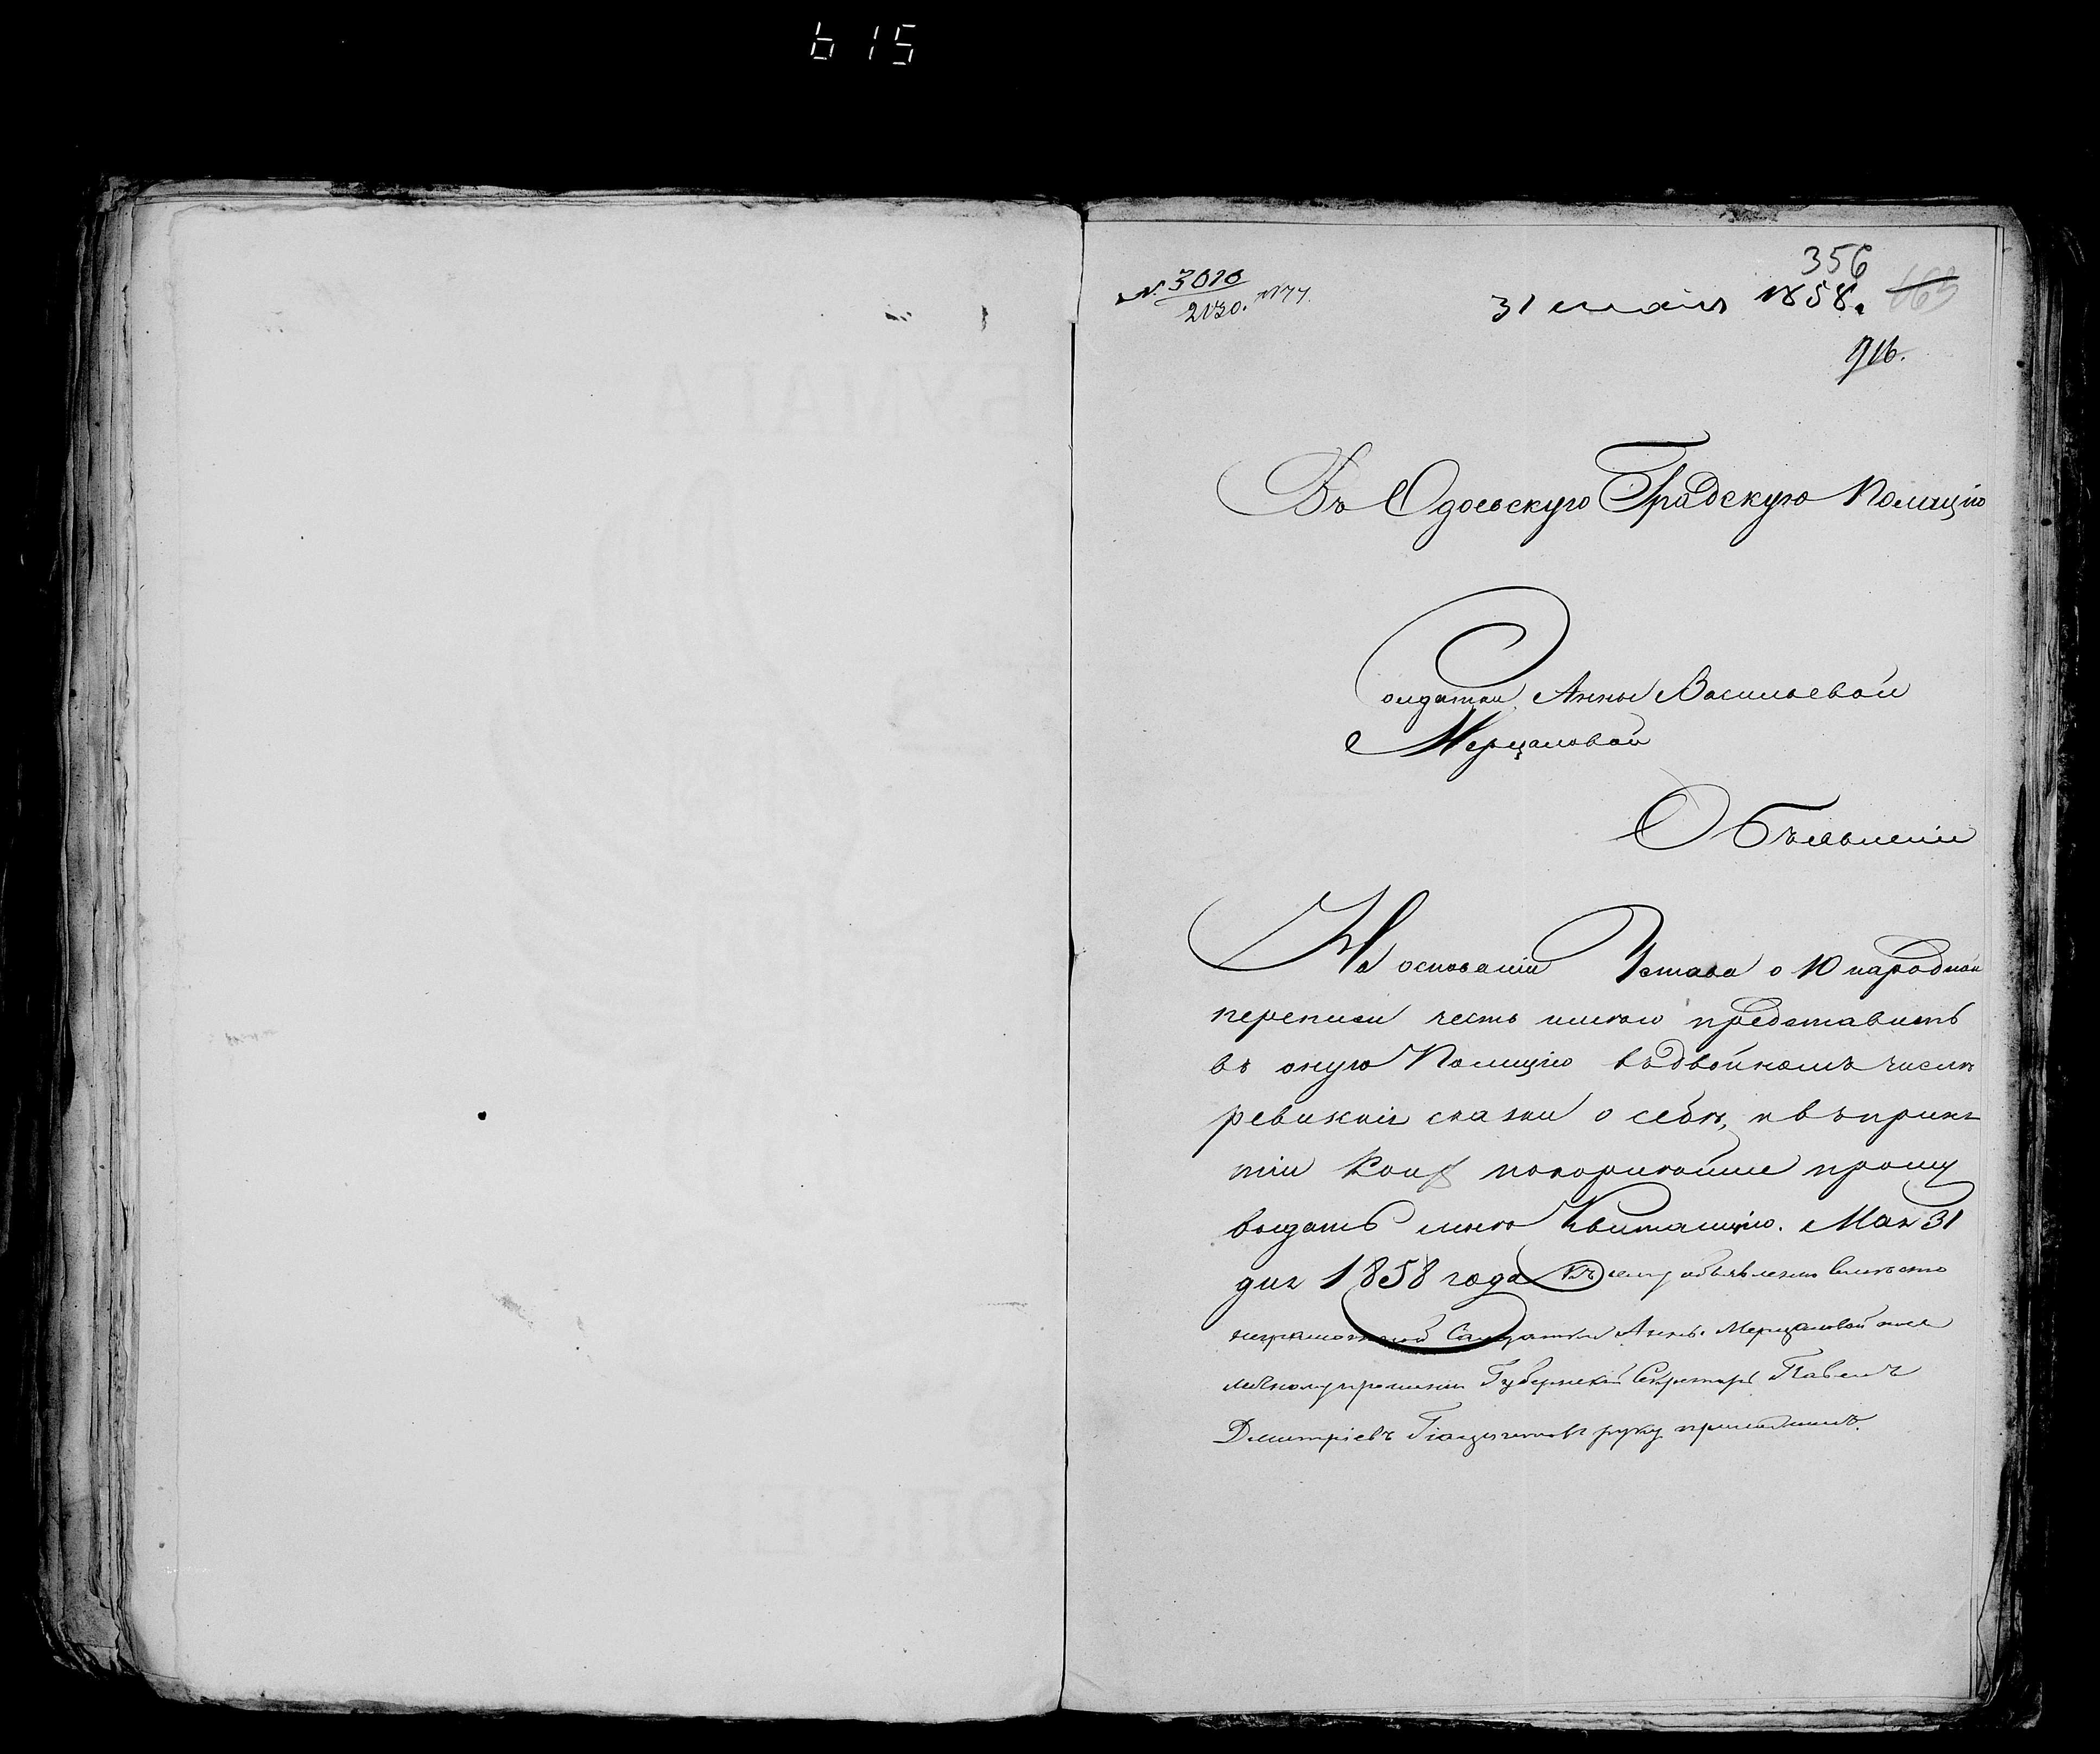 615
№ 3010
2130. № 77.
356
31 мая 1858.
163
916.
Въ Одоевскую Градскую Полицію
Солдатки Анны Васильевой
Мерцаловой
Объявленіе
На основаніи Устава о 10 народной
переписи честь имею представить
въ оную Полицію въ двойномъ числѣ
ревизкія сказки о себѣ, и въ приня
тіи коихъ покорнѣйше прошу
выдать мнѣ Квитанцію. Мая 31
дня 1858 года Къ сему объявленію вместо
неграмотной Солдатки Анны Мерцаловой по ея
личному прошенію Губернскій Секретарь Павелъ
Дмитріевъ руку приложилъ.
БУМАГА